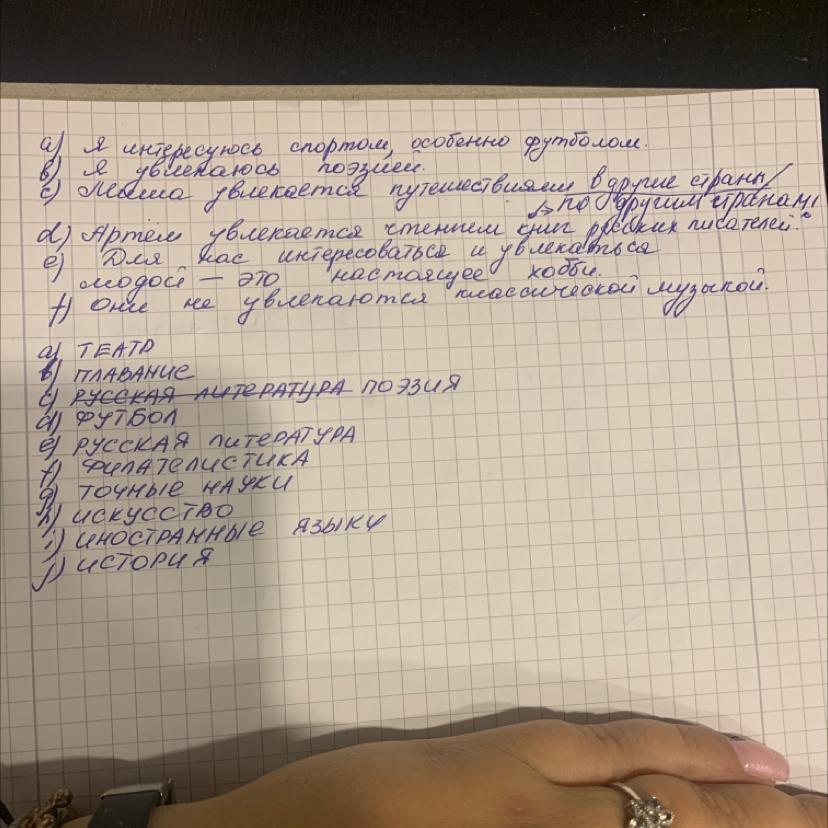 a) Я интересуюсь спортом, особенно футболом.
b) Я увлекаюсь поэзией.
c) Маша увлекается путешествиями в другие страны/
↳ по другим странам.
d) Артём увлекается чтением книг русских писателей.
e) Для нас интересоваться и увлекаться
модой — это настоящее хобби.
f) Они не увлекаются классической музыкой.
a) ТЕАТР
b) ПЛАВАНИЕ
c) РУССКАЯ ЛИТЕРАТУРА ПОЭЗИЯ
d) ФУТБОЛ
e) РУССКАЯ ЛИТЕРАТУРА
f) ФИЛАТЕЛИСТИКА
g) ТОЧНЫЕ НАУКИ
h) ИСКУССТВО
i) ИНОСТРАННЫЕ ЯЗЫКИ
j) ИСТОРИЯ